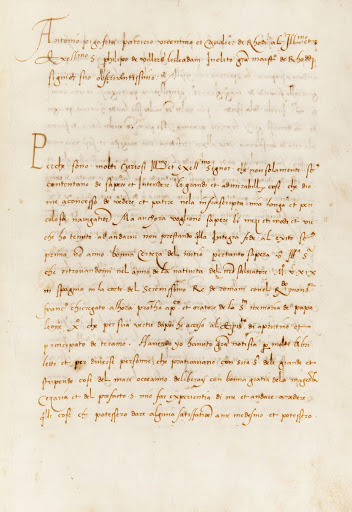 Antonio pigafeta patricio vicentino et Caualier de Rhodi a l Ill.mo et
Excell.mo S. philipo de villers lisleadam Inclito gra maist.o de Rhodi
signior suo osseruandissimo.
Perche sono molti curiosi Ill.mo et excell.mo signor che non solamente se
contentano de sapere et Intendere li grandi et admirabili cose che dio
me a concesso de vedere et patire nela infrascripta mia longa et peri
colosa navigatione Ma anchora vogliono sapere li mezi et modi et vie
che ho tenuto ad andarui non prestando quella Integra fede a l exito se
prima non anno bona certeza de l initio pertanto sapera V. Ill. S.
che ritrouandomi nel anno de la natiuita del nro saluatore M.D.xix
in spagnia in la corte del serenissimo Re de romani con el R.do monsr.
franc.o chieregato alhora protho ap.co et oratore de la S.ta memoria de papa
leone X. che per sua vertu dapoi he acceso a l episcopato de aprutino et
principato de teramo. Hauendo yo hauuto gra notisia p molti libri
letti et per diuerse persone che praticauano con sua S. de le grande et
stupende cose del mare occeanno. deliberay con bona gratia de la magestà
Cezaria et del prefacto S. mio far experientia di me et andare a vedere
quelle cose che potessero dare alguna satisfatione a me medesmo et potessero